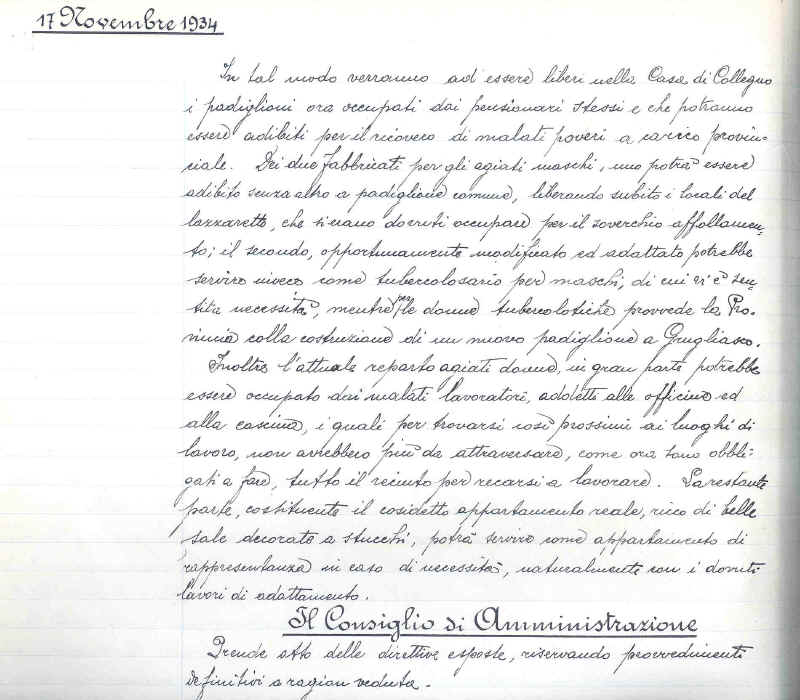 17 Novembre 1934
In tal modo verranno ad essere liberi nella Casa di Collegno
i padiglioni ora occupati dai pensionari stessi e che potranno
essere adibiti per il ricovero di malati poveri a carico provin-
ciale. Dei due fabbricati per gli agiati maschi, uno potrà essere
adibito senza altro a padiglione comune, liberando subito i locali del
lazzaretto, che si erano dovuti occupare per il soverchio affollamen-
to; il secondo, opportunamente modificato ed adattato potrebbe
servire invece come tubercolosario per maschi, di cui vi è sen-
tita necessità, mentre per le donne tubercolotiche provvede la Pro-
vincia colla costruzione di un nuovo padiglione a Grugliasco.
Inoltre l'attuale reparto agiati donne, in gran parte potrebbe
essere occupato dai malati lavoratori, addetti alle officine ed
alla cascina, i quali per trovarsi così prossimi ai luoghi di
lavoro, non avrebbero più da attraversare, come ora sono obbli-
gati a fare, tutto il recinto per recarsi a lavorare. La restante
parte, costituente il cosidetto appartamento reale, ricco di belle
sale decorate a stucchi, potrà servire come appartamento di
rappresentanza in caso di necessità, naturalmente con i dovuti
lavori di adattamento.
Il Consiglio di Amministrazione
Prende atto delle direttive esposte, riservando provvedimenti
definitivi a ragion veduta.